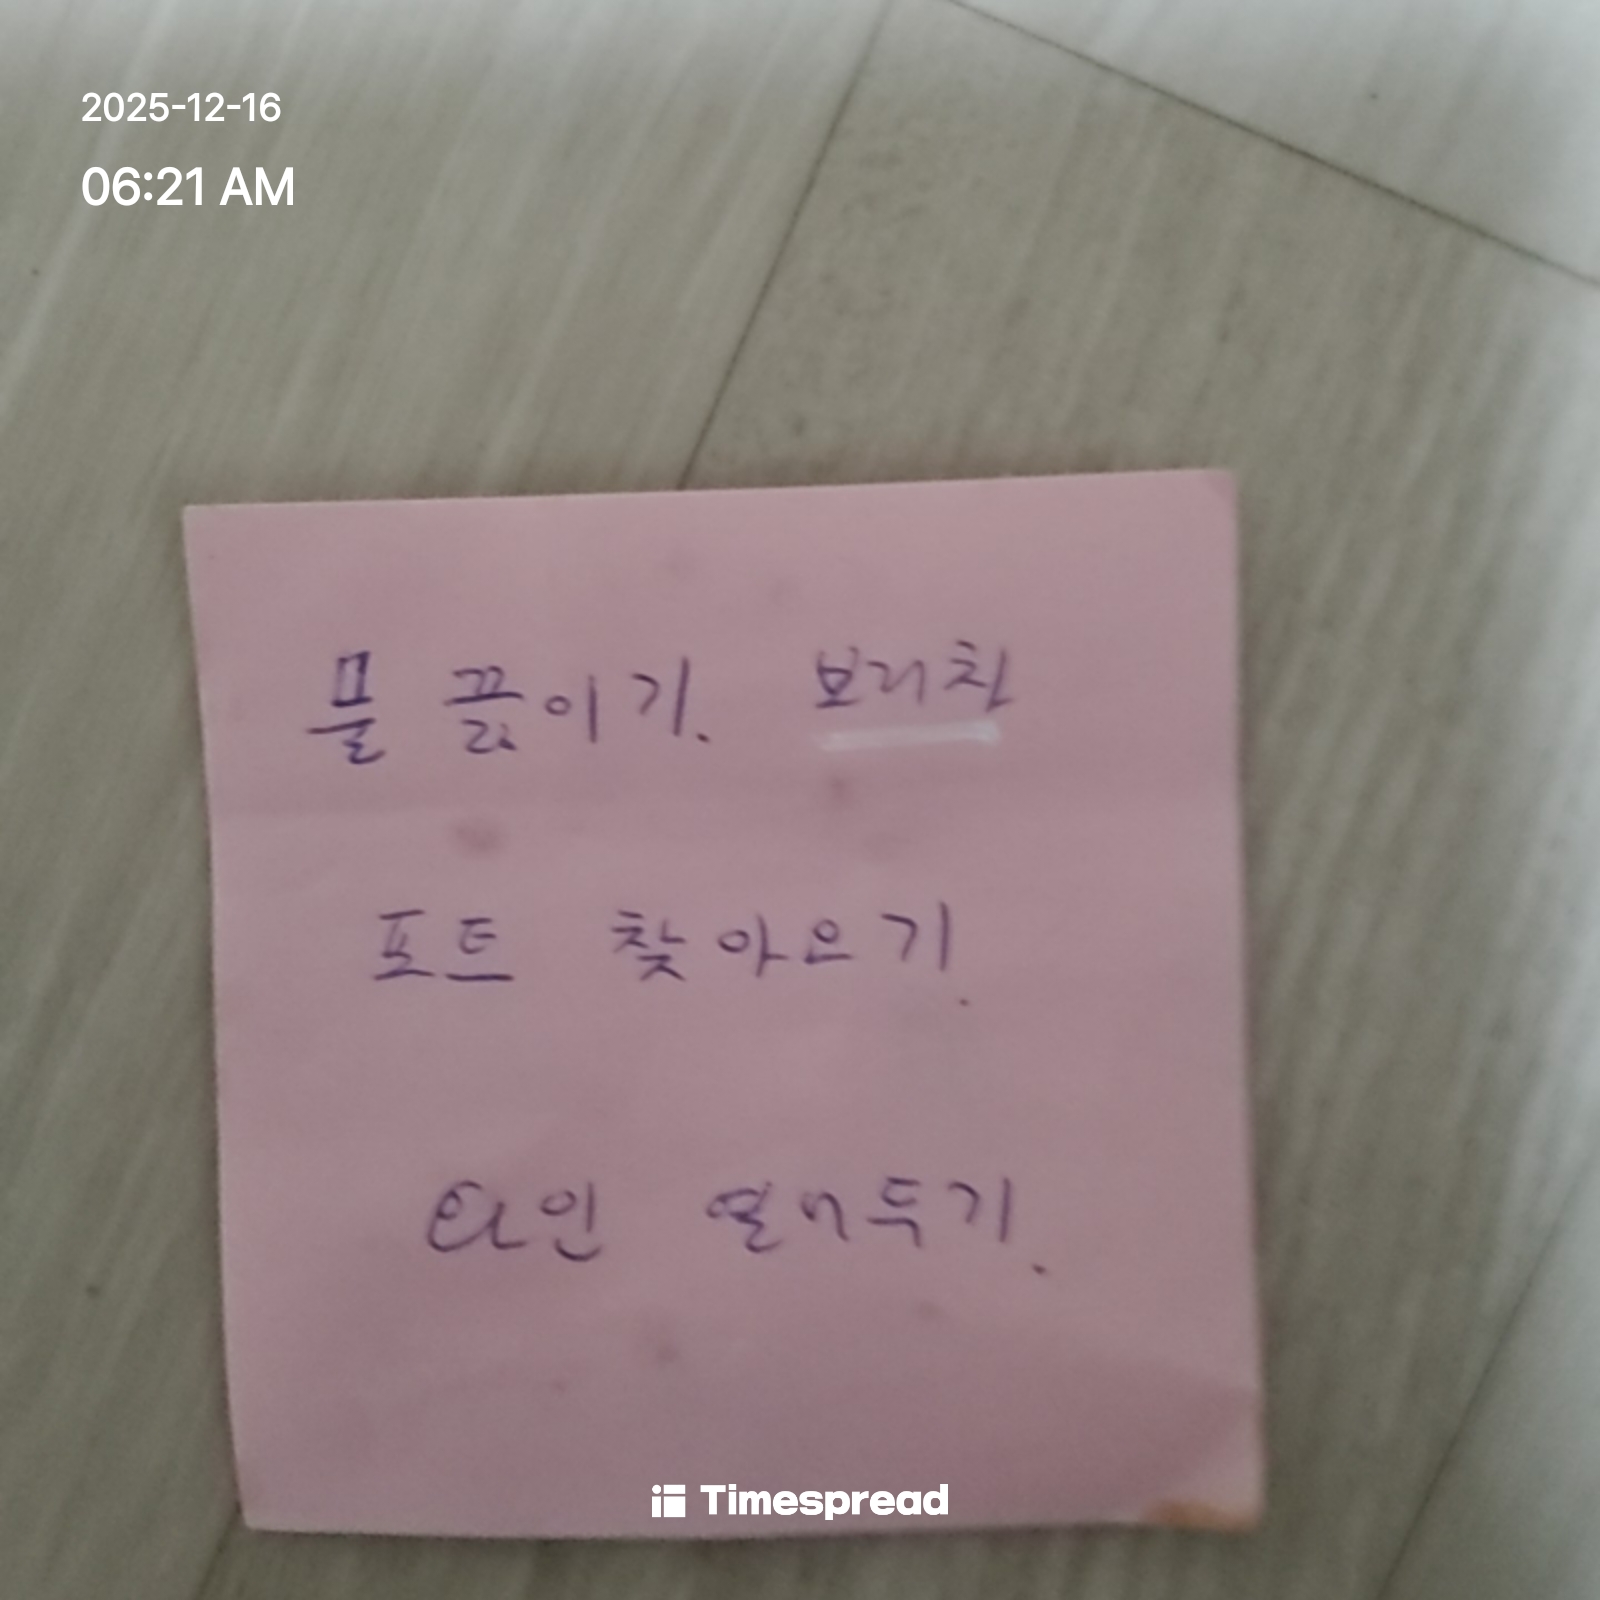 2025-12-16
06:21 AM
물 끓이기. 보리차
포트 찾아오기.
타인 열어두기.
Timespread